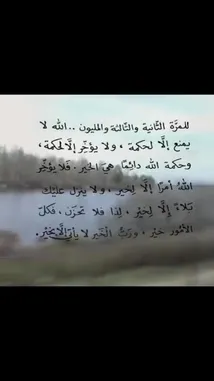 للمرَّة الثَّانية والثَّالثة والمليون .. الله لا
يمنع إلَّا لحكمة ، ولا يؤخِّر إلَّا لحكمة ،
وحكمة الله دائمًا هي الخير ، فلا يؤخِّر
اللهُ أمرًا إلَّا لِخير ، ولا ينزل عليك
بَلاءً إلَّا لِخيْر ، لِذا فلا تحزَن ، فكلّ
الأمُور خيْر ، وربُّ الْخَير لا يأتي إلَّا بِخَيْر .